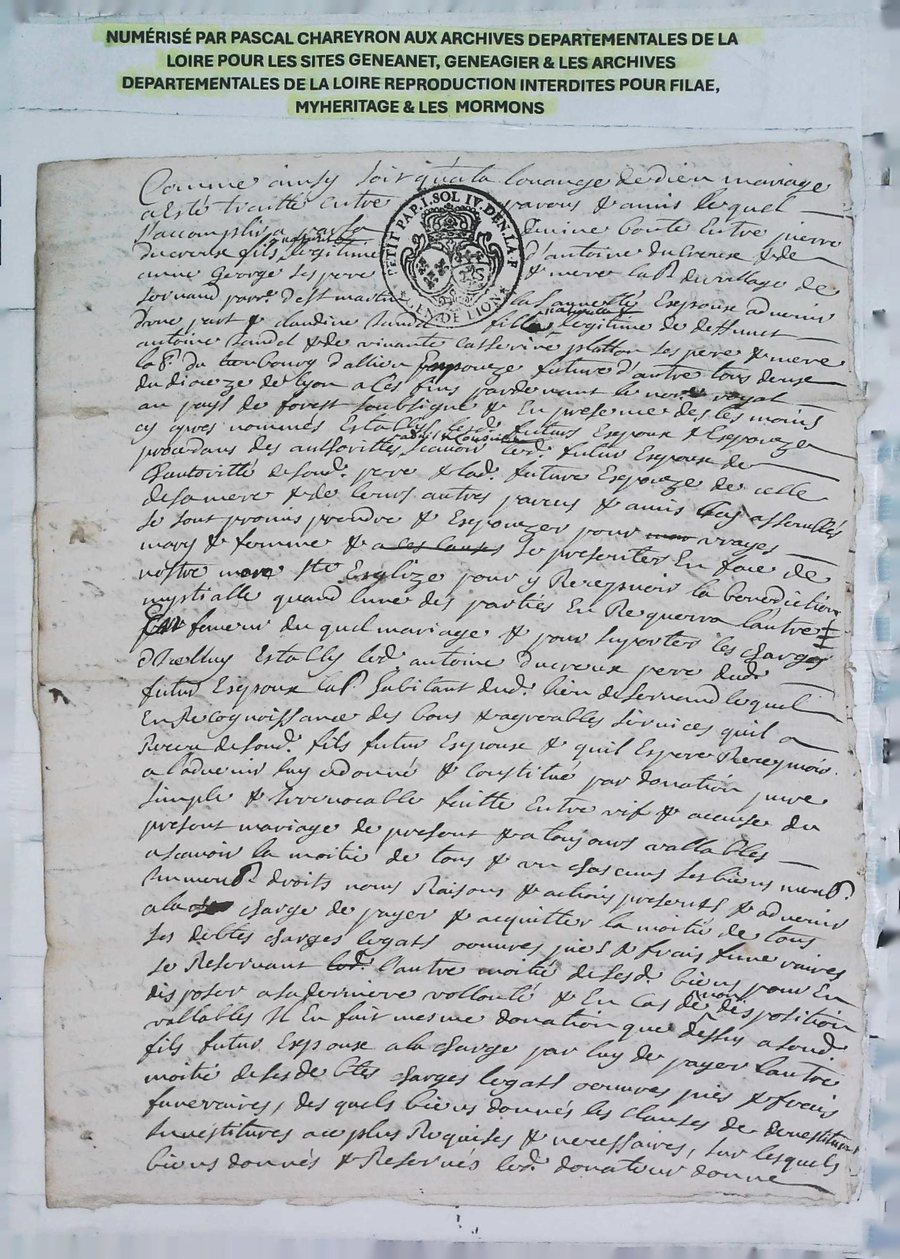 NUMÉRISÉ PAR PASCAL CHAREYRON AUX ARCHIVES DEPARTEMENTALES DE LA
LOIRE POUR LES SITES GENEANET, GENEAGIER & LES ARCHIVES
DEPARTEMENTALES DE LA LOIRE REPRODUCTION INTERDITES POUR FILAE,
MYHERITAGE & LES MORMONS
Comme ainsy soit qu'a la louange de dieu mariage
a esté traitté entre parans & amis lequel
s'accomplira par la divine bonté entre pierre
ducreux fils naturel & legitime d'antoine ducreux & de
anne George ses pere & mere la P. du village de
sornand parr. de st martin la sauveté Espoux advenir
d'une part & claudine fille naturelle & legitime de deffunct
antoine & de vivante catherine platton ses pere & mere
la P. du bourg d'allieu Espouze future d'autre tous deux
du dioceze de lyon a ces fins pardevant le no.re royal
au pays de forest soubsigné & En presence des tesmoins
cy apres nommés Establys lesd. futurs Espoux & Espouze
procedans des authorités sçavoir led. futur Espoux de
l'autorité de sond. pere & lad. future Espouze de celle
de sa mere & de leurs autres parens & amis assemblés
se sont promis prendre & Espouzer pour vrays
mary & femme & se presenter En face de
nostre mere Ste Esglize pour y Recepvoir la benediction
nuptialle quand l'une des parties En Requerra l'autre
En faveur du quel mariage & pour suporter les charges
d'Icelluy Estably led. antoine ducreux pere dud.
futur Espoux la P. habitant dud. lieu de sornand lequel
En Recognoissance des bons & agreables services quil a
Receu de sond. fils futur Espoux & quil Espere Recepvoir
a l'advenir luy a donné & constitue par donation pure
simple & Irrevocable faitte Entre vif & a cause du
present mariage de present & a toujours vallables
a sçavoir la moitié de tous & un chascuns ses biens meub.
Immeub. droits noms Raisons & actions presents & advenir
a la charge de payer & acquitter la moitié de tous
ses debtes charges legats oeuvres pies & frais funeraires
se Reservant l'autre moitié de sesd. biens pour En
disposer a sa derniere vollonté & En cas de non disposition
vallables Il En fait mesme donation que dessus a sond.
fils futur Espoux a la charge par luy de payer l'autre
moitié de ses debtes charges legats oeuvres pies & frais
funeraires, des quels biens donnés les clauses de devestitures
Investitures a ce plus Requises & necessaires, sur lesquels
biens donnés & Reservés led. donateur donne
PETIT PAP. I. SOL IV. DEN. LA F
GEN. DE LION